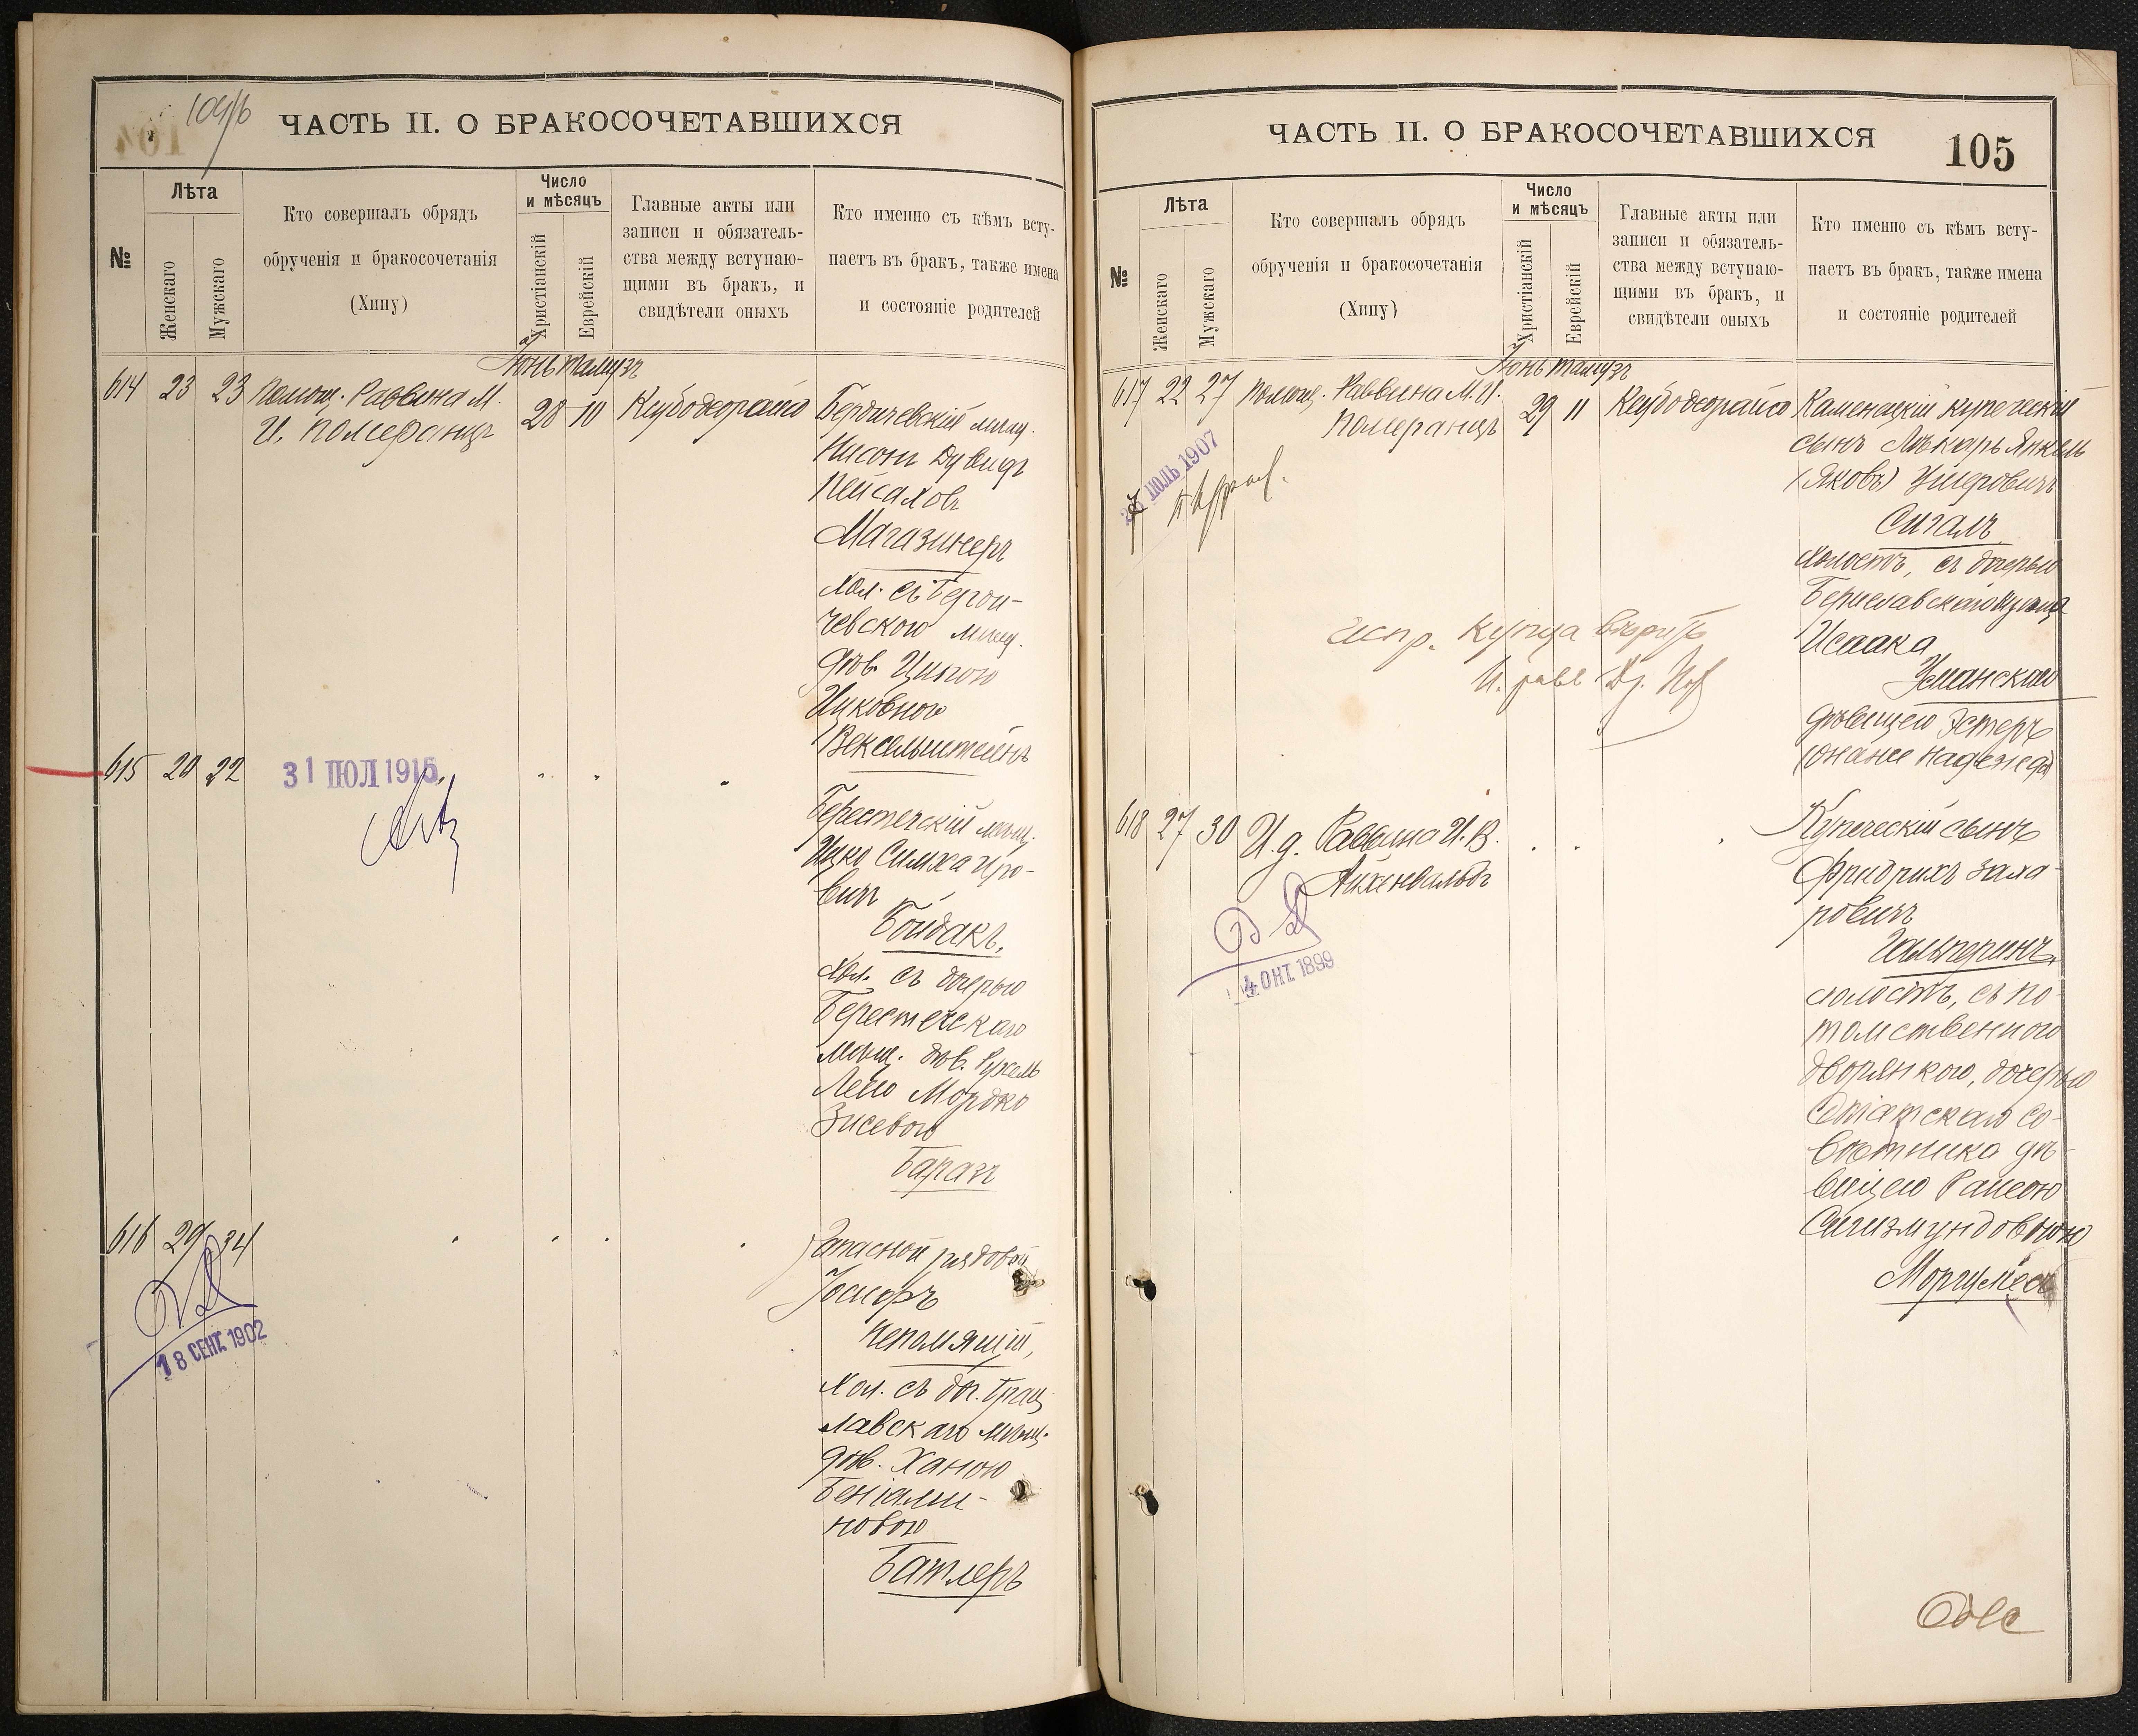 104/б
ЧАСТЬ II. О БРАКОСОЧЕТАВШИХСЯ
№
Лѣта
Женскаго
Мужскаго
Кто совершалъ обрядъ
обрученія и бракосочетанія
(Хипу)
Число
и мѣсяцъ
Христіанскій
Еврейскій
Главные акты или
записи и обязатель-
ства между вступаю-
щими въ бракъ, и
свидѣтели оныхъ
Кто именно съ кѣмъ всту-
паетъ въ бракъ, также имена
и состояніе родителей
Іюнь тамузъ
614 23 23 Помощ. Раввина М.
И. Померанцъ
28 10
Бердичевскій мѣщ.
Нисонъ Дувидъ
Пейсаховъ
Магазинеръ
хол. съ Берди-
чевскою мѣщ.
дѣв. Ципою
Ицковною
Вексельштейнъ
615 20 22
31 ІЮЛ 1915
Берестечскій мѣщ.
Ицко Симха
вичъ
Бойдакъ,
хол. съ дочерью
Берестечскаго
мѣщ. дѣв. Рухель
Леею Мордко
Зисевою
Баразъ
616 29 34
18 СЕНТ. 1902
Запасной рядовой
Іосифъ
Непомящій,
хол. съ доч. Брац-
лавскаго мѣщ.
дѣв. Ханою
Беніами-
новою
Батлеръ
ЧАСТЬ II. О БРАКОСОЧЕТАВШИХСЯ
105
№
Лѣта
Женскаго
Мужскаго
Кто совершалъ обрядъ
обрученія и бракосочетанія
(Хипу)
Число
и мѣсяцъ
Христіанскій
Еврейскій
Главные акты или
записи и обязатель-
ства между вступаю-
щими въ бракъ, и
свидѣтели оныхъ
Кто именно съ кѣмъ всту-
паетъ въ бракъ, также имена
и состояніе родителей
Іюнь тамузъ
617 22 27 Помощ. Раввина М. И.
Померанцъ
29 11
ІЮЛЬ 1907
Каменецкій купеческій
сынъ Лѣкарь Янкель
(Яковъ)
Сигалъ
холостъ, съ дочерью
Бериславскаго купца
Исаака
Уманскаго
дѣвицею Эстеръ
(она же Надежда)
испр. купца вѣрить
618 27 30 И. д. Раввина И. В.
Айхенвальдъ
4 ОКТ. 1899
Купеческій сынъ
Фридрихъ Заха-
ровичъ
Гальперинъ
холостъ, съ по-
томственною
дворянкою, дочерью
Статскаго Со-
вѣтника дѣ-
вицею Раисою
Сигизмундовною
Моргулесъ